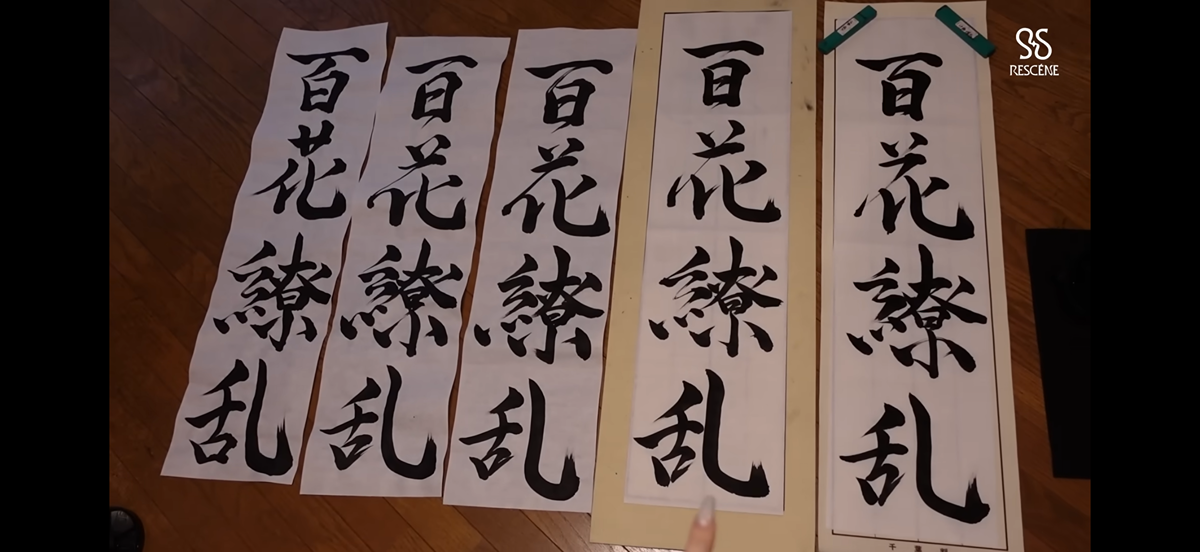 百花繚乱
百花繚乱
百花繚乱
百花繚乱
百花繚乱
RESCENE